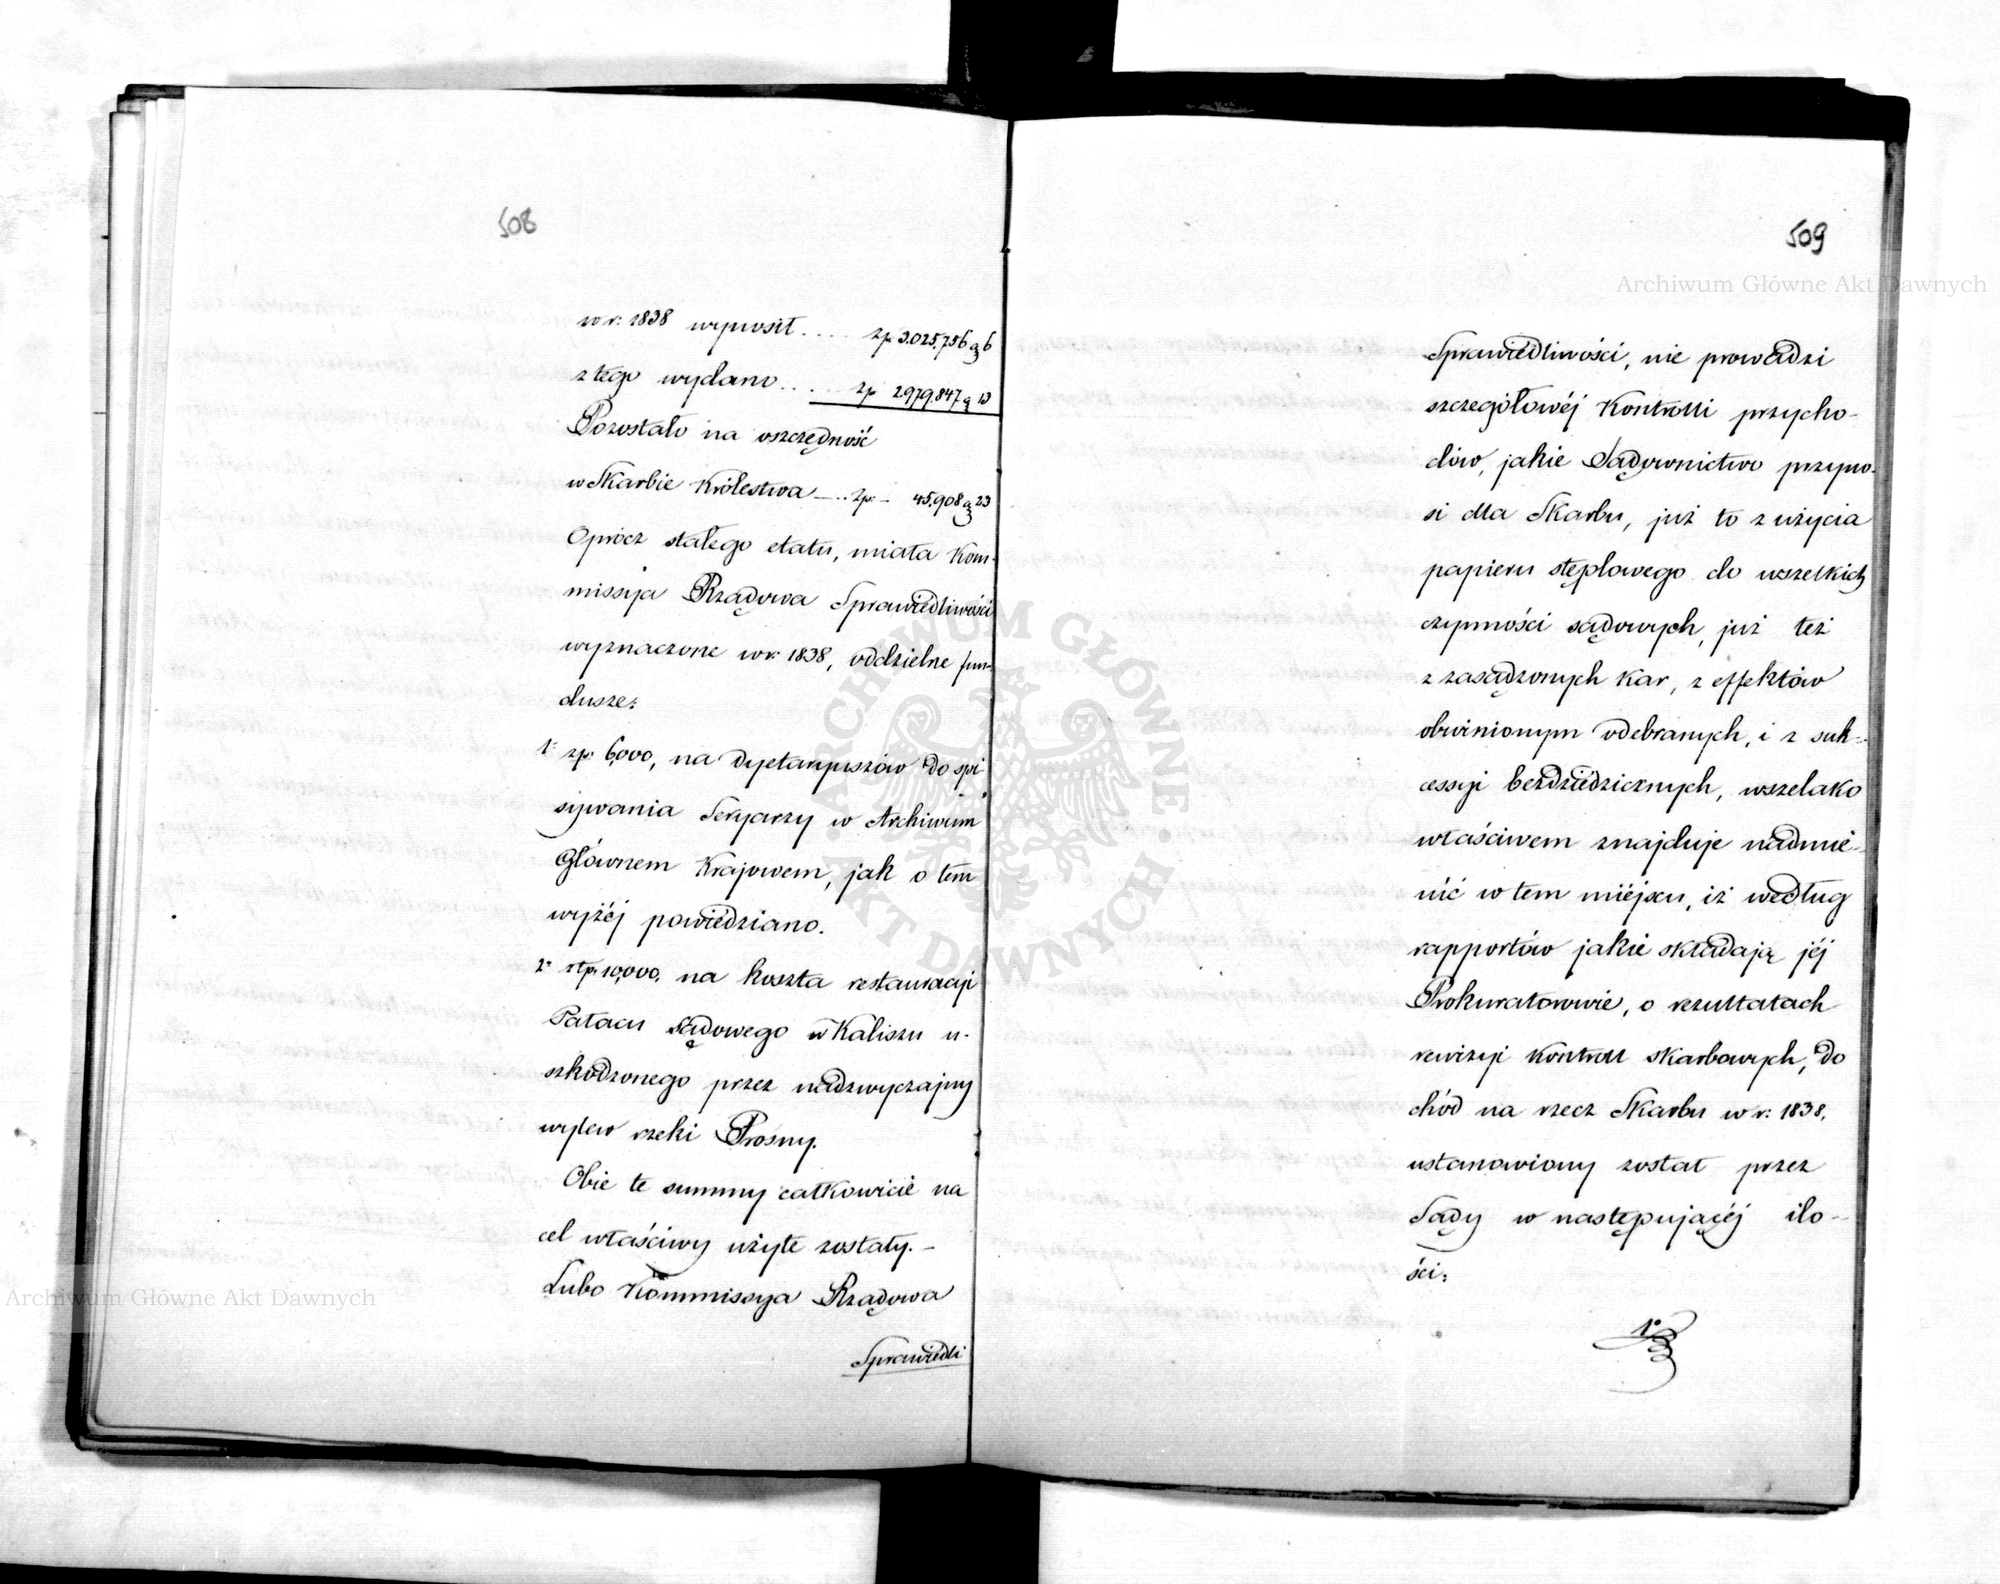 508
w r: 1838 wynosił .... zp. 3.025.756 g 6
z tego wydano ..... zp 2.979.847 g 13
Pozostało na oszczędność
w Skarbie Królestwa — .. zp: – 45,908 g 23
Oprócz stałego etatu, miała Kom-
missyja Rządowa Sprawiedliwości
wyznaczone w r: 1838, oddzielne fun-
dusze:
1° zp: 6,000, na dyetaryuszów do spi
sywania Seryarzy w Archiwum
Głównem Krajowem, jak o tem
wyżéj powiedziano.
2° złp: 10,000, na koszta restauracyi
Pałacu Sądowego w Kaliszu u-
szkodzonego przez nadzwyczajny
wylew rzeki Prosny.
Obie te summy całkowicie na
cel właściwy użyte zostały. –
Lubo Kommissya Rządowa
Sprawiedli
509
Sprawiedliwości, nie prowadzi
szczegółowéj Kontrolli przycho-
dów, jakie Sądownictwo przyno-
si dla Skarbu, już to z użycia
papieru stęplowego do wszelkich
czynności sądowych, już też
z zasądzonych kar, z effektów
obwinionym odebranych, i z suk-
cessyi bezdziedzicznych, wszelako
właściwem znajduje nadmie-
nić w tem miéjscu, iż według
rapportów jakie składają jéj
Prokuratorowie, o rezultatach
rewizyi kontroll skarbowych, do
chód na rzecz Skarbu w r: 1838,
ustanowiony został przez
Sądy w następującéj ilo-
ści:
1°
Archiwum Główne Akt Dawnych
Archiwum Główne Akt Dawnych
ARCHIWUM GŁÓWNE • AKT DAWNYCH •